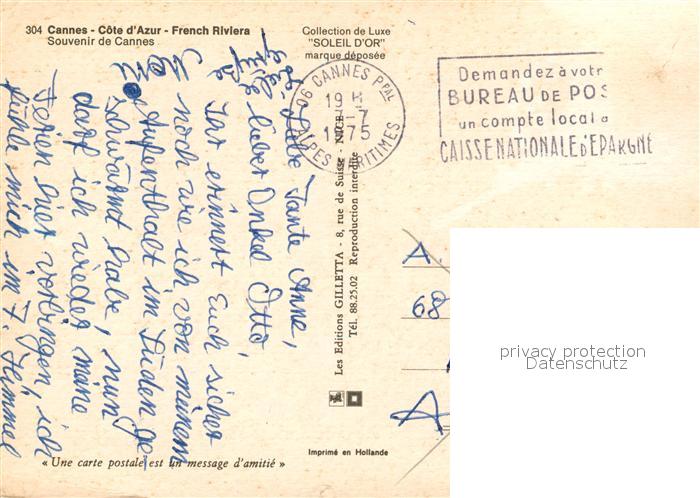 304 Cannes - Côte d'Azur - French Riviera
Souvenir de Cannes
Collection de Luxe
"SOLEIL D'OR"
marque déposée
06 CANNES PPAL
19 H
-7
1975
ALPES MARITIMES
Demandez à votr
BUREAU DE POS
un compte local
CAISSE NATIONALE D'EPARGNE
Liebe Tante Anne,
lieber Onkel Otto,
Ihr erinnert Euch sicher
noch wie ich von meinem
Aufenthalt im Süden ge-
schwärmt habe, nun
darf ich wieder meine
Ferien hier verbringen, ich
fühle mich im 7. Himmel
Les Editions GILLETTA - 8, rue de Suisse - NICE
Tél. 88.25.02 Reproduction interdite
A.
68
A
privacy protection
Datenschutz
Imprimé en Hollande
« Une carte postale est un message d'amitié »